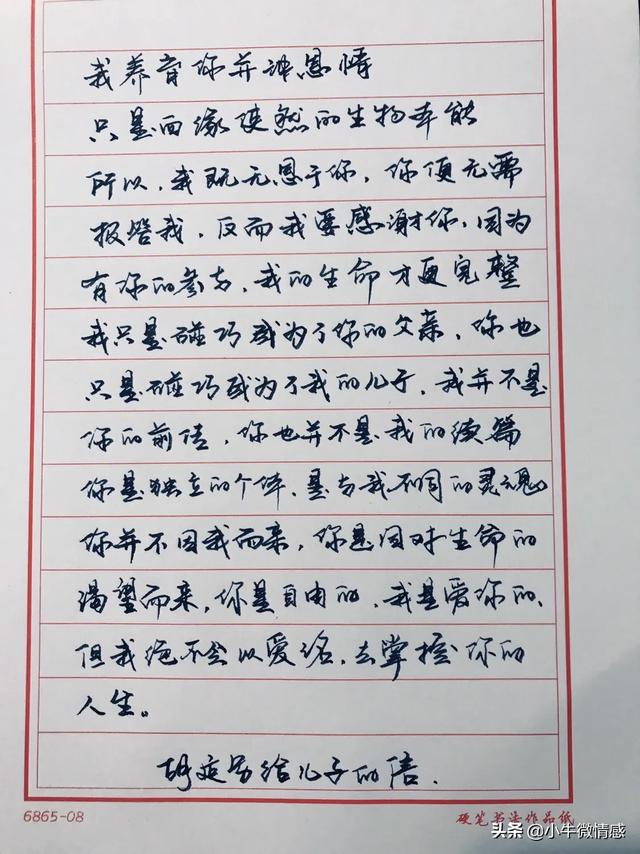 我养育你并非恩情
只是血缘使然的生物本能
所以，我既无恩于你，你便无需
报答我，反而我要感谢你，因为
有你的参与，我的生命才更完整
我只是碰巧成为了你的父亲，你也
只是碰巧成为了我的儿子，我并不是
你的前传，你也并不是我的续篇
你是独立的个体、是与我不同的灵魂。
你并不因我而来，你是因对生命的
渴望而来，你是自由的，我是爱你的、
但我绝不会以爱名，去掌控你的
人生。
胡适写给儿子的信.
6865-08
硬笔书法作品纸
头条 @小牛微情感